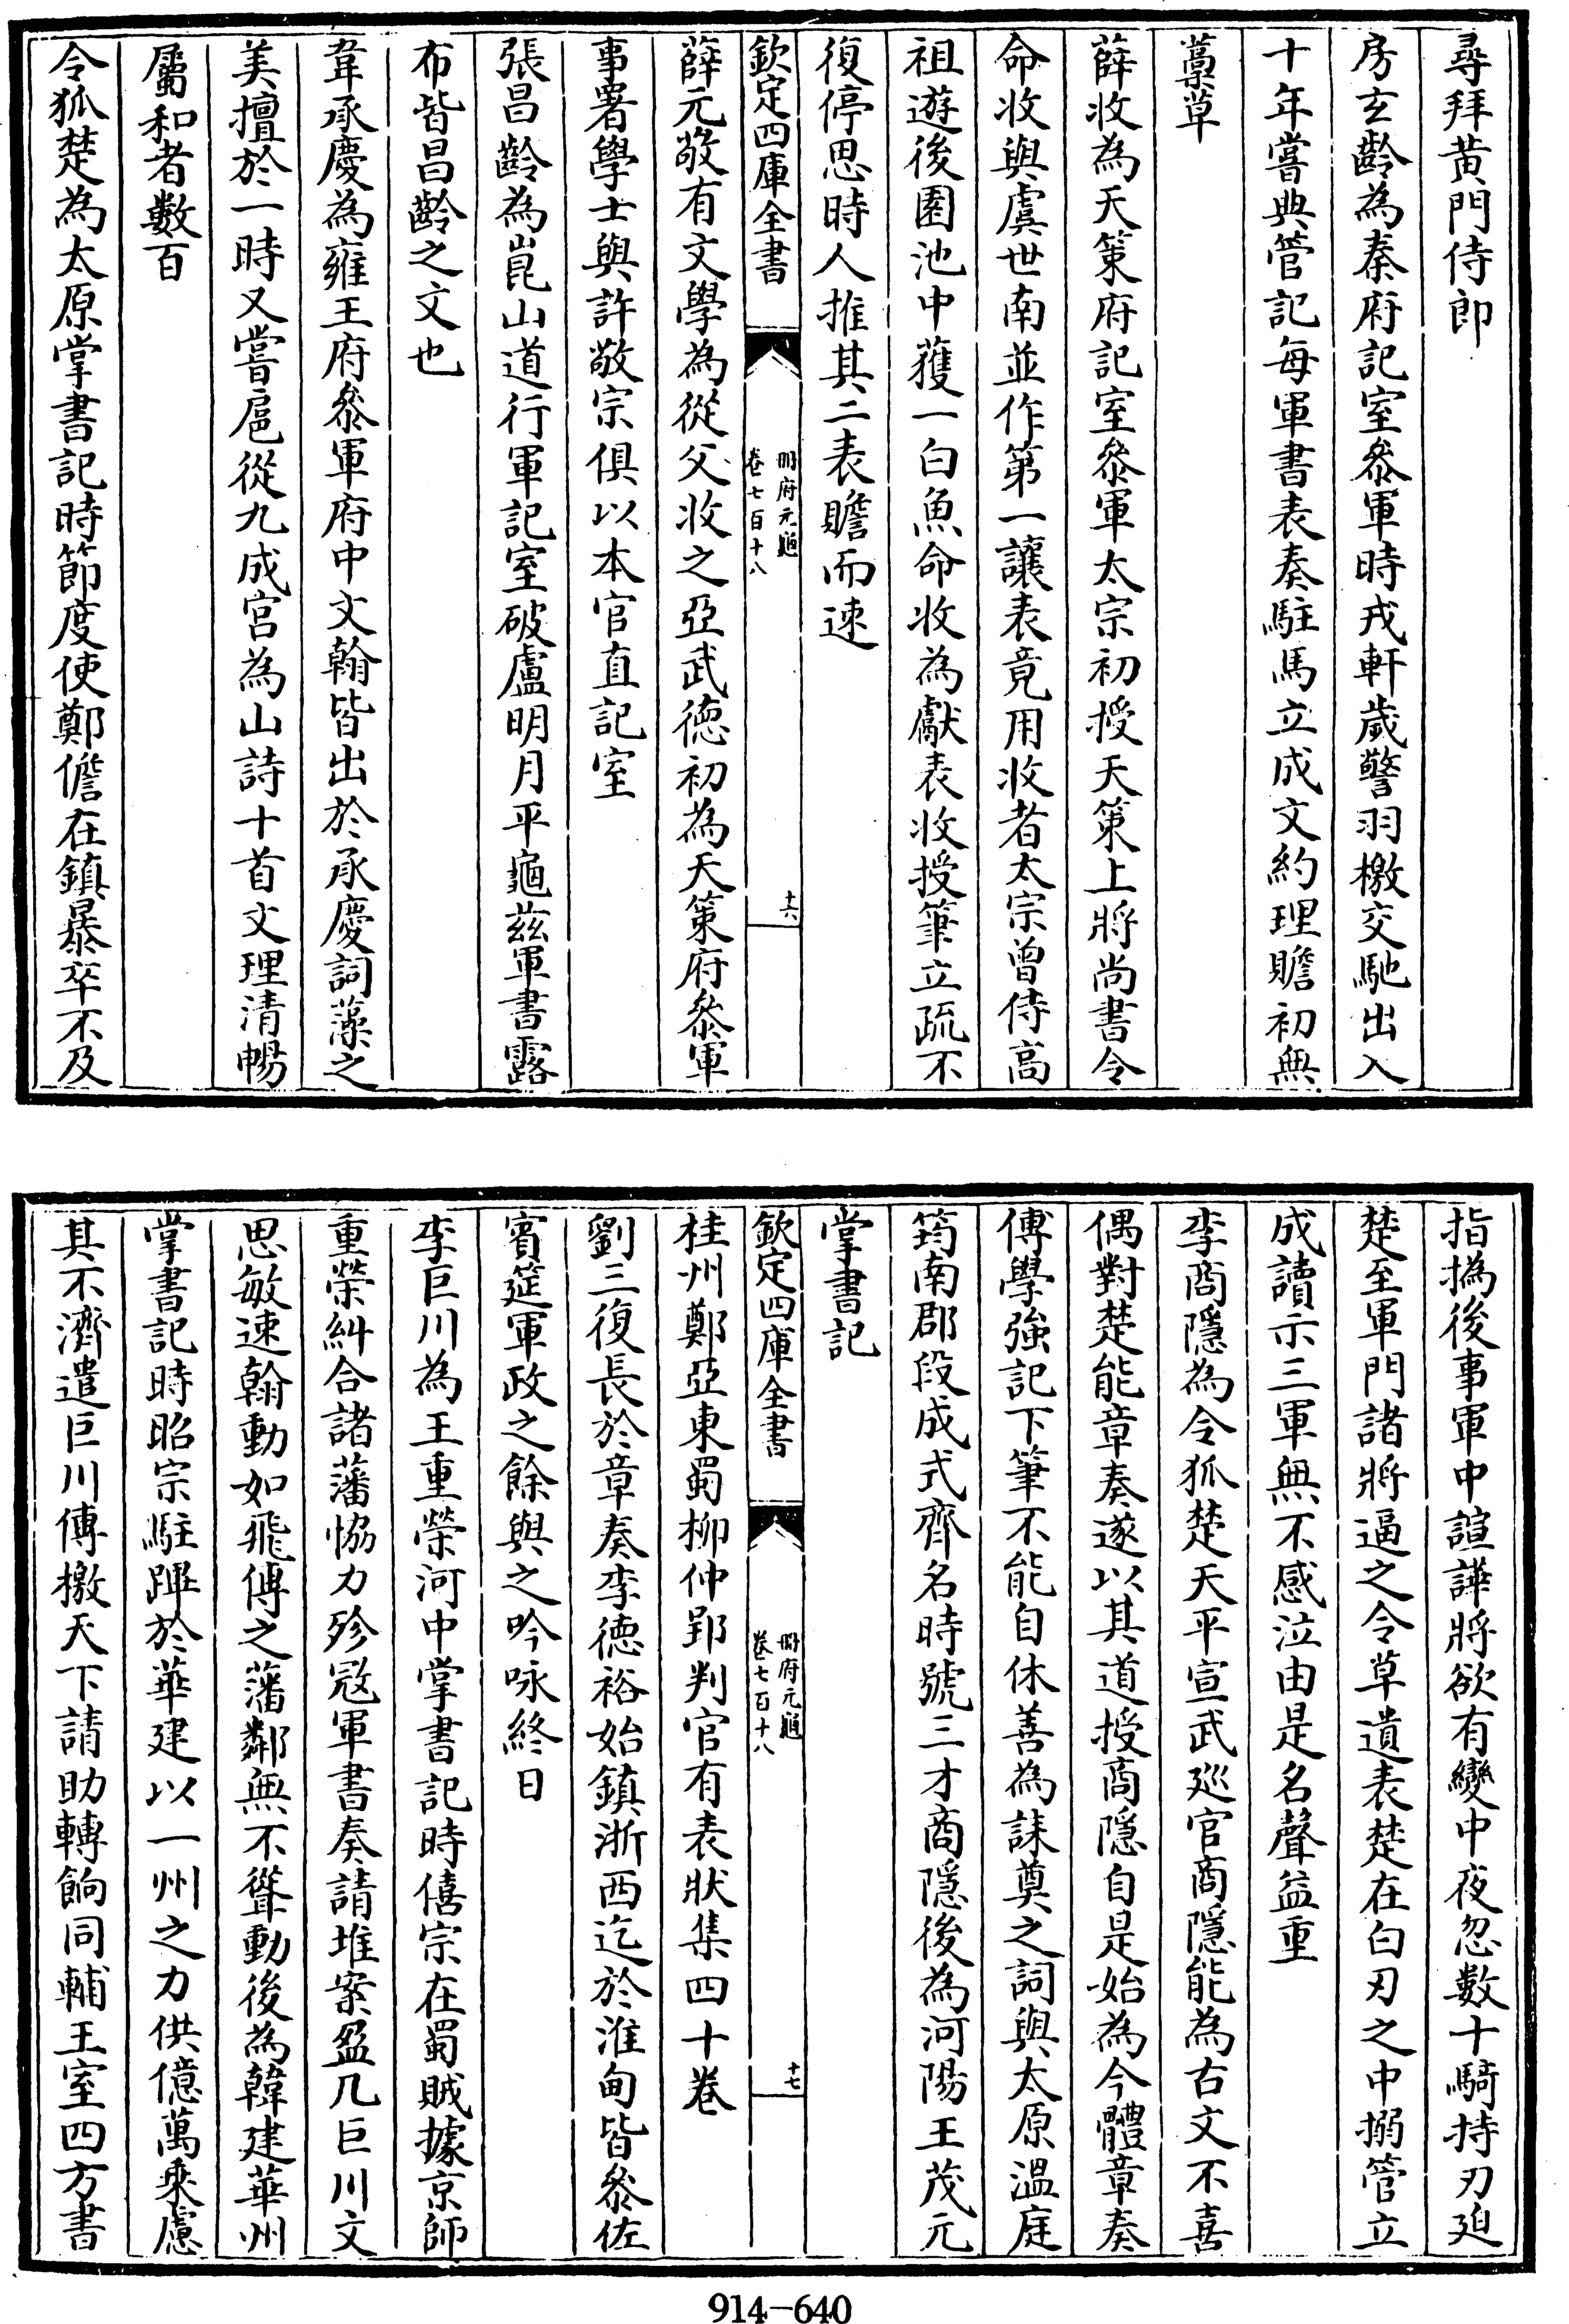 尋拜黄門侍郎
房玄齡為秦府記室叅軍時戎軒歲警羽檄交馳出入
十年嘗典管記每軍書表奏駐馬立成文約理贍初無
藁草
薛收為天䇿府記室叅軍太宗初授天䇿上將尚書令
命收與虞世南並作第一讓表竟用收者太宗曾侍高
祖遊後園池中獲一白魚命收為獻表收授筆立疏不
復停思時人推其二表贍而速
欽定四庫全書
冊府元龜
卷七百十八
十六
薛元敬有文學為從父收之亞武徳初為天䇿府叅軍
事署學士與許敬宗俱以本官直記室
張昌齡為崑山道行軍記室破盧明月平龜兹軍書露
布皆昌齡之文也
韋承慶為雍王府叅軍府中文翰皆出於承慶詞藻之
美擅於一時又嘗扈從九成宫為山詩十首文理清暢
屬和者數百
令狐楚為太原掌書記時節度使鄭儋在鎮暴卒不及
指撝後事軍中諠譁將欲有變中夜忽數十騎持刃廹
楚至軍門諸將逼之令草遺表楚在白刃之中搦管立
成讀示三軍無不感泣由是名聲益重
李商隱為令狐楚天平宣武廵官商隱能為古文不喜
偶對楚能章奏遂以其道授商隱自是始為今體章奏
傅學強記下筆不能自休善為誄奠之詞與太原溫庭
筠南郡段成式齊名時號三才商隱後為河陽王茂元
掌書記
欽定四庫全書
冊府元龜
卷七百十八
十七
桂州鄭亞東蜀柳仲郢判官有表狀集四十卷
劉三復長於章奏李徳裕始鎮浙西迄於淮甸皆叅佐
賓筵軍政之餘與之吟咏終日
李巨川為王重榮河中掌書記時僖宗在蜀賊據京師
重榮糾合諸藩恊力殄冦軍書奏請堆案盈几巨川文
思敏速翰動如飛傅之藩鄰無不聳動後為韓建華州
掌書記時昭宗駐蹕於華建以一州之力供億萬乗慮
其不濟遣巨川傳檄天下請助轉餉同輔王室四方書
914-640